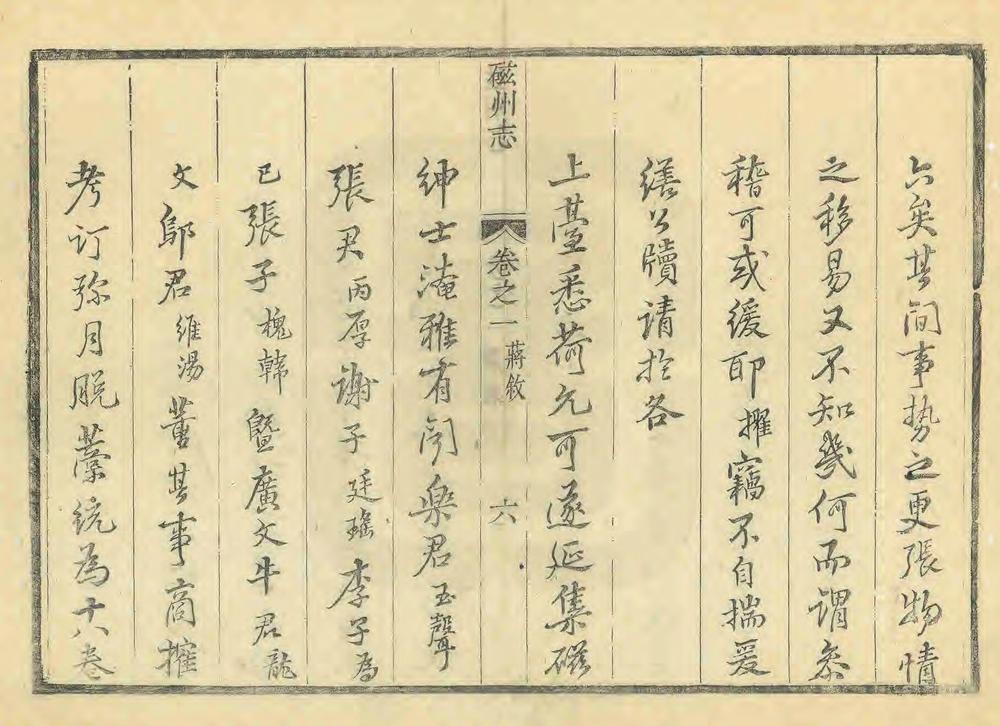 六矣其間事勢之更張物情
之移易又不知幾何而謂叅
稽可或緩耶擢竊不自揣爰
繕公牘請於各
上臺悉荷允可遂延集磁
磁州志 卷之一 蔣敘 六
紳士淹雅有聞樂君玉聲
張君丙厚謝子廷瑤李子為
已張子槐韓暨廣文牛君龍
文鄔君維湯董其事商搉
考訂弥月脫藁統為十八卷